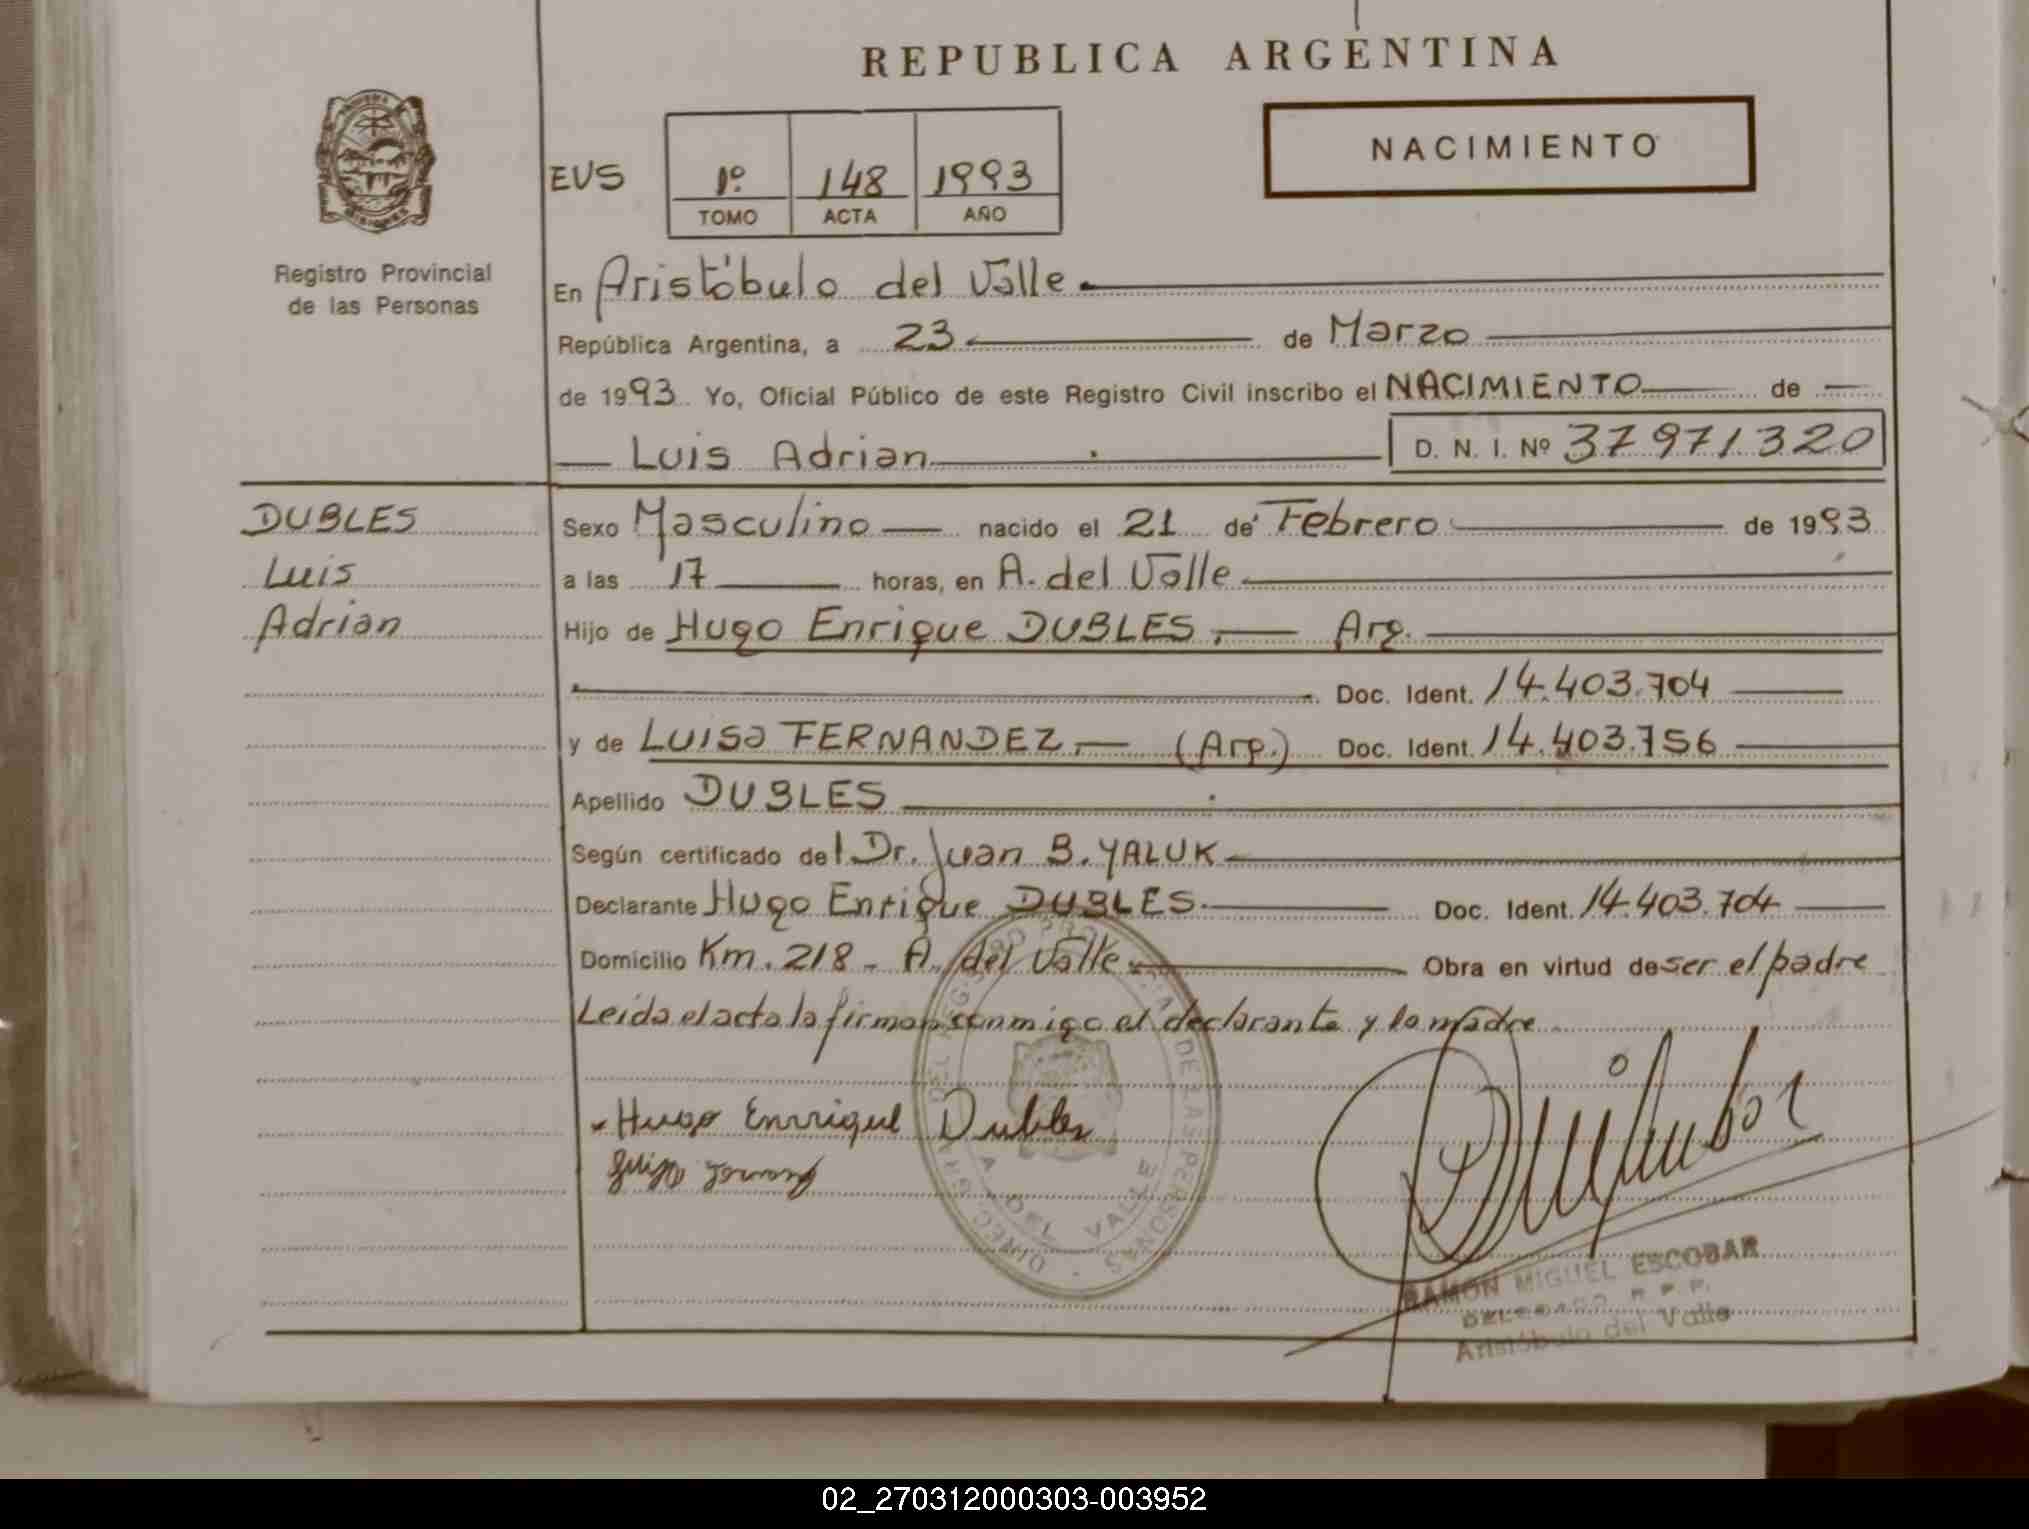 REPUBLICA ARGENTINA
NACIMIENTO
EUS
1º 148 1993
TOMO ACTA AÑO
Registro Provincial
de las Personas
En Aristóbulo del Valle
República Argentina, a 23 de Marzo
de 1993 Yo, Oficial Público de este Registro Civil inscribo el NACIMIENTO de
Luis Adrian D. N. I. Nº 37971320
DUBLES
Luis
Adrian
Sexo Masculino nacido el 21 de Febrero de 1993
a las 17 horas, en A. del Valle
Hijo de Hugo Enrique DUBLES. Arg.
Doc. Ident. 14.403.704
y de LUISA FERNANDEZ. (Arg.) Doc. Ident. 14.403.756
Apellido DUBLES
Según certificado del Dr. Juan B. YALUK
Declarante Hugo Enrique DUBLES. Doc. Ident. 14.403.704
Domicilio Km. 218 - A. del Valle Obra en virtud de ser el padre
Leida el acta la firman conmigo el declarante y la madre
Hugo Enrrique Dubles
DIREC. GRAL. DEL REGISTRO PROVINCIAL DE LAS PERSONAS
A. DEL VALLE
RAMON MIGUEL ESCOBAR
DELEGADO R. P. P.
Aristóbulo del Valle
02_270312000303-003952